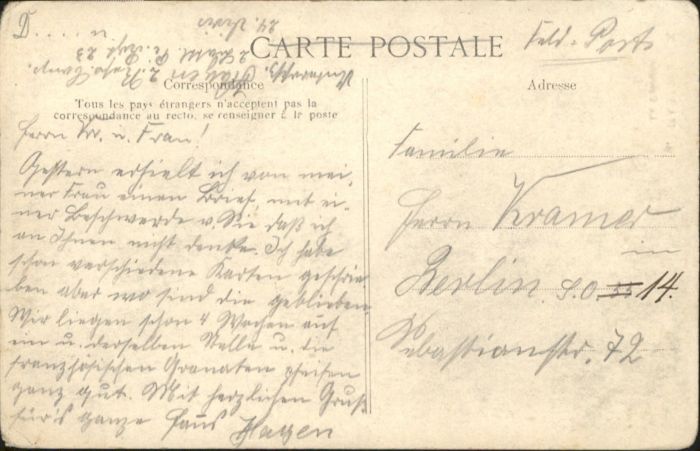 D.....
24. Divis
2. Batl. 
Rgt. 23
Unteroffz. Hagen 2. Komp.
CARTE POSTALE
Feld-Post
Correspondance
Adresse
Tous les pays étrangers n'acceptent pas la
correspondance au recto, se renseigner à la poste
Herrn Kr. u. Frau!
Gestern erhielt ich von mei-
ner Frau einen Brief mit ei-
ner Beschwerde v. Sie daß ich
an Ihnen nicht denke. Ich habe
schon verschiedene Karten geschrie
ben aber wo sind die geblieben
Wir liegen schon 4 Wochen auf
ein u. derselben Stelle u. die
französischen Granaten pfeifen
ganz gut. Mit herzlichen Gruß
für's ganze Haus Hagen
Familie
Herrn Kramer
in
Berlin S.O. 14.
Sebastianstr. 72